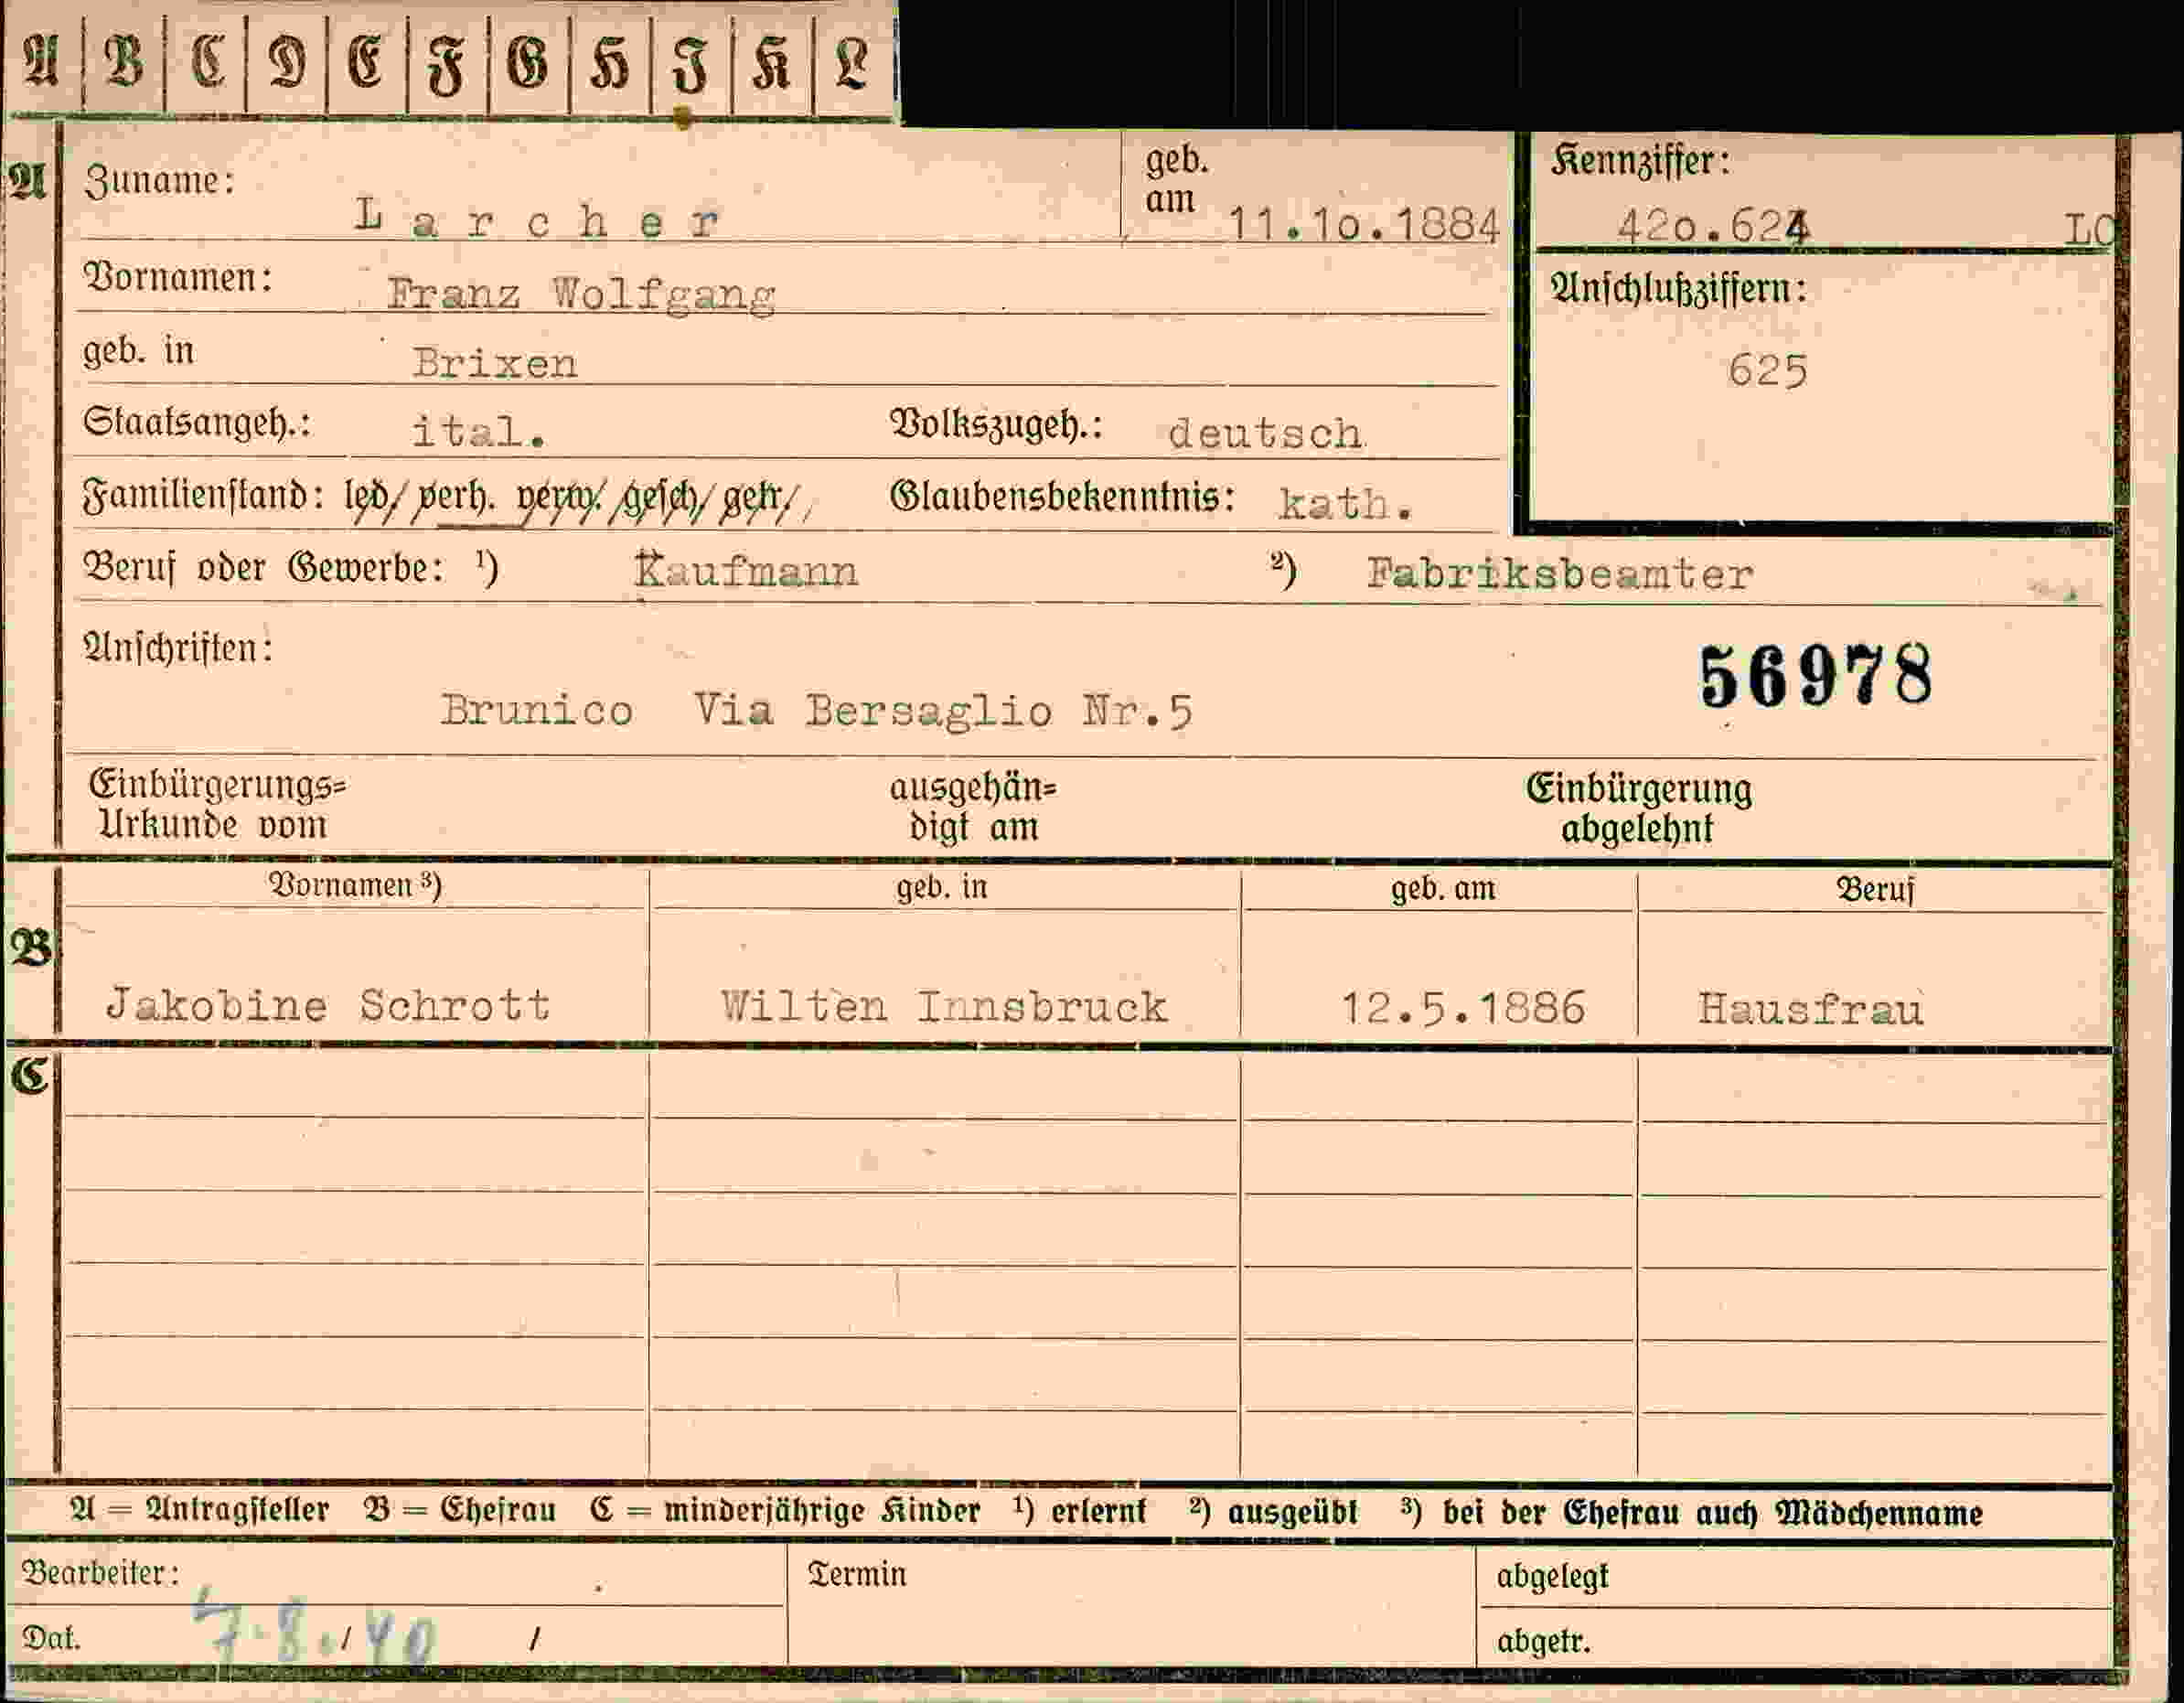 A B C D E F G H J K L
A Zuname: Larcher geb. am 11.10.1884 Kennziffer: 420.624 LO
Vornamen: Franz Wolfgang Anschlußziffern:
geb. in Brixen 625
Staatsangeh.: ital. Volkszugeh.: deutsch
Familienstand: led/ verh. verw./gesch/getr/, Glaubensbekenntnis: kath.
Beruf oder Gewerbe: ¹) Kaufmann ²) Fabriksbeamter
Anschriften: 56978
Brunico Via Bersaglio Nr.5
Einbürgerungs= ausgehän= Einbürgerung
Urkunde vom digt am abgelehnt
Vornamen ³) geb. in geb. am Beruf
B
Jakobine Schrott Wilten Innsbruck 12.5.1886 Hausfrau
C
A = Antragsteller B = Ehefrau C = minderjährige Kinder ¹) erlernt ²) ausgeübt ³) bei der Ehefrau auch Mädchenname
Bearbeiter: Termin abgelegt
Dat. 7.8./40 / abgetr.